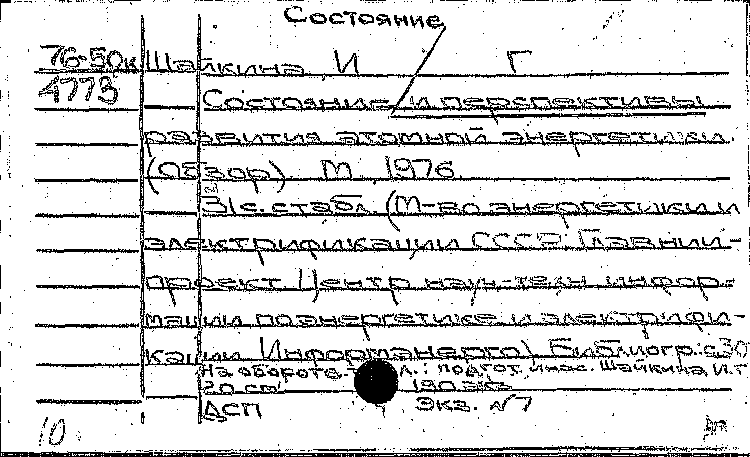 Состояние
76-50к Шайкина И Г
4773 Состояние и перспективы
развития атомной энергетики.
(Обзор) М 1976
31с. с табл. (М-во энергетики и
электрификации СССР. Главнии-
проект Центр науч.-техн инфор-
мации по энергетике и электрифи-
кации Информэнерго) Библиогр.: с.30
На обороте : подгот. инж. Шайкина И.Г.
20 см 190 экз
ДСП Экз. №7
10